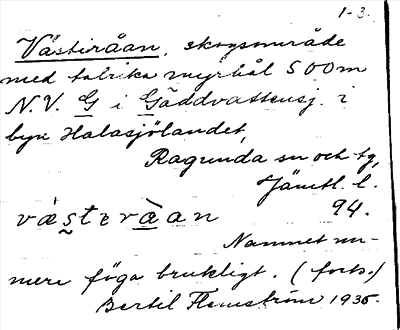 1-3.
Västiråan, skogsområde
med talrika myrhål 500m
N.V. G i Gäddvattensj. i
byn Halasjölandet,
Ragunda sn och tg,
Jämtl. l.
västeråan 94.
Namnet nu-
mera föga brukligt. (forts.)
Bertil Flemström 1935.